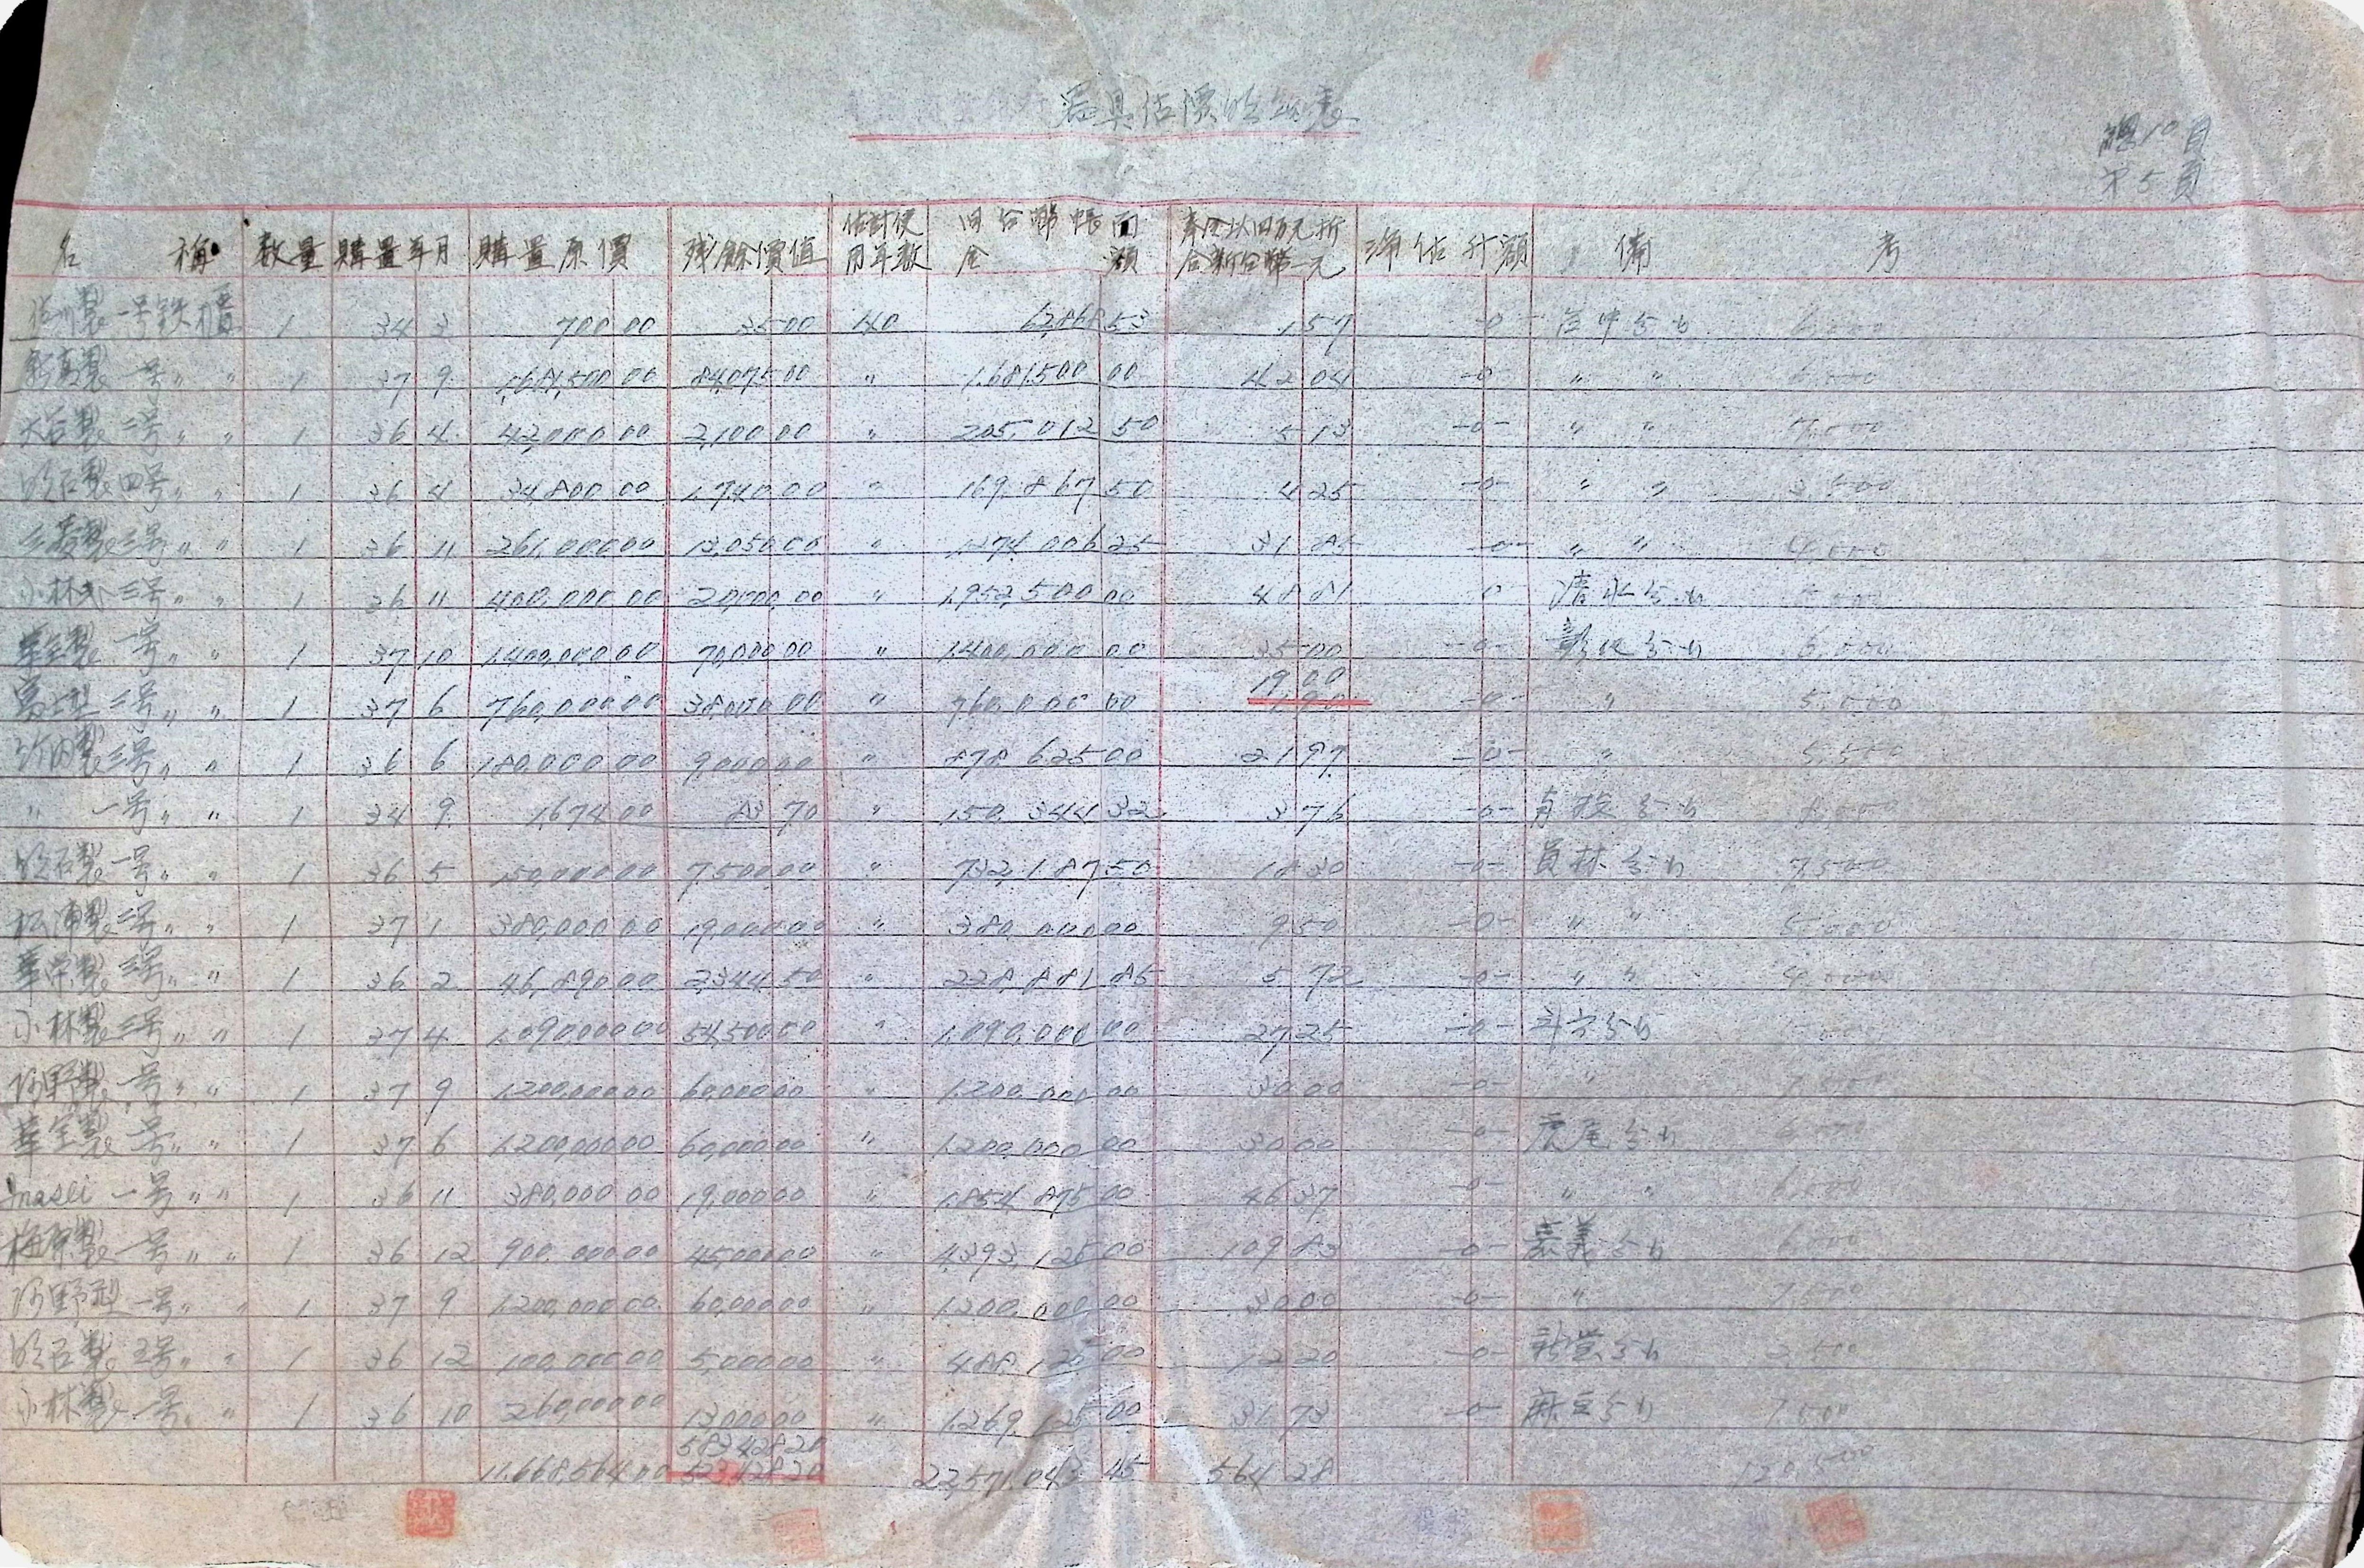 器具估價明細表
總10頁
第5頁
名稱 数量 購置年月 購置原價 残餘價值 估計使用年数 旧台幣帳面金額 奉令以四万元折合新台幣一元 淨估升額 備考
製一号鉄櫃 1 34 3 700 00 35 00 40 62,868 53 1 57 -0- 台中
新高製一号〃〃 1 37 9 1,681,500 00 84,075 00 〃 1,681,500 00 42 04 -0- 〃 〃
大台製三号〃〃 1 36 4 42,000 00 2,100 00 〃 205,012 50 5 13 -0- 〃 〃
明石製四号〃〃 1 36 4 34,800 00 1,740 00 〃 169,867 50 4 25 -0- 〃 〃 3,500
三菱製三号〃〃 1 36 11 261,000 00 13,050 00 〃 1,274,006 25 31 85 -0- 〃 〃 4,000
小林式三号〃〃 1 36 11 400,000 00 20,000 00 〃 1,952,500 00 48 81 0 清水
華全製一号〃〃 1 37 10 1,400,000 00 70,000 00 〃 1,400,000 00 35 00 -0- 彰化 6,000
富士型三号〃〃 1 37 6 760,000 00 38,000 00 〃 760,000 00 19 00 1 90 -0- 〃 5,000
竹内製三号〃〃 1 36 6 180,000 00 9,000 00 〃 878,625 00 21 97 -0- 〃 5,500
〃 一号〃〃 1 34 9 1,674 00 83 70 〃 150,344 32 3 76 -0-
明石製一号〃〃 1 36 5 150,000 00 7,500 00 〃 732,187 50 18 30 -0- 員林 7,500
松浦製三号〃〃 1 37 1 380,000 00 19,000 00 〃 380,000 00 9 50 -0- 〃 〃 5,000
華栄製三号〃〃 1 36 2 46,890 00 2,344 50 〃 228,881 85 5 72 -0- 〃 〃 4,000
小林製三号〃〃 1 37 4 1,090,000 00 54,500 00 〃 1,090,000 00 27 25 -0- 斗六
河野製一号〃〃 1 37 9 1,200,000 00 60,000 00 〃 1,200,000 00 30 00 -0- 〃 7,500
華全製一号〃〃 1 37 6 1,200,000 00 60,000 00 〃 1,200,000 00 30 00 -0- 虎尾 6,000
一号〃〃 1 36 11 380,000 00 19,000 00 〃 1,854,875 00 46 37 -0- 〃 〃 6,000
梅原製一号〃〃 1 36 12 900,000 00 45,000 00 〃 4,393,125 00 109 83 -0- 嘉義 6,000
河野型一号〃〃 1 37 9 1,200,000 00 60,000 00 〃 1,200,000 00 30 00 -0- 〃 7,500
明石製 〃〃 1 36 12 100,000 00 5,000 00 〃 488,125 00 12 20 -0- 新営 2,500
小林製一号〃〃 1 36 10 260,000 00 13,000 00 〃 1,269,125 00 31 73 -0- 麻豆 7,500
583,428 20
11,668,564 00 523,428 20 22,571,043 45 564 28 120,500